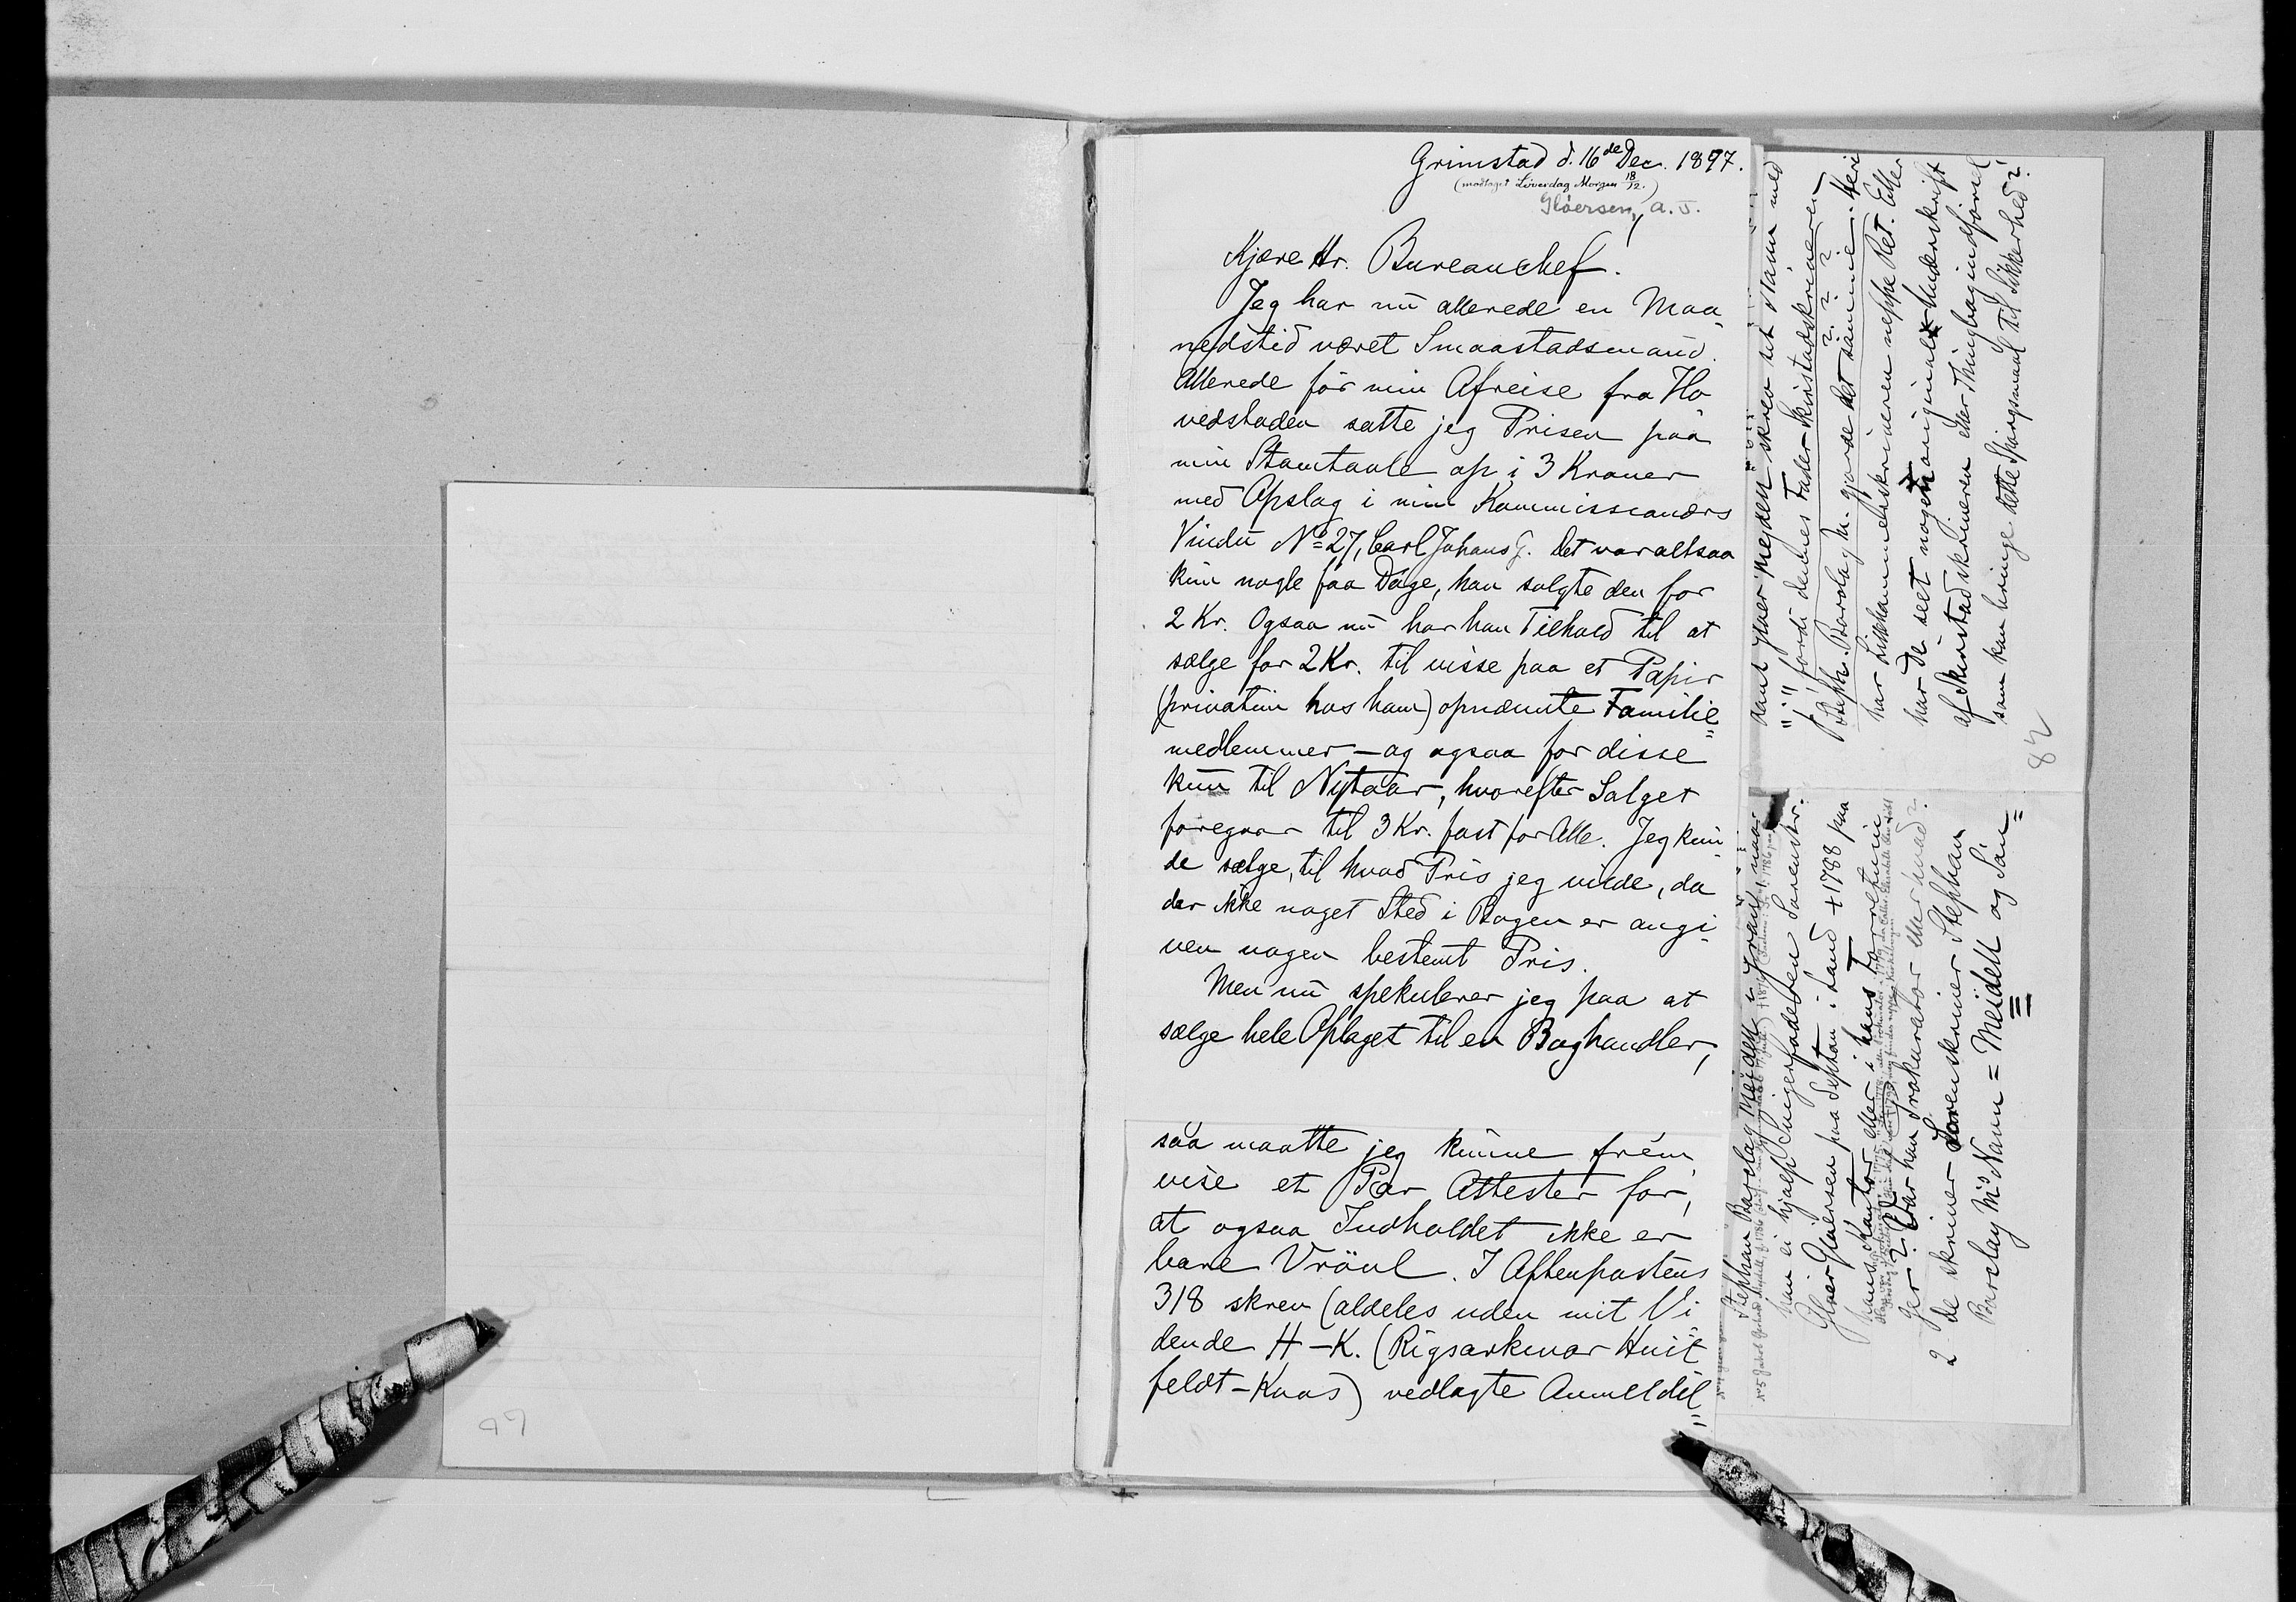 Grimstad d. 16de Dec. 1897.
(modtaget Löverdag Morgen 18/12.)
Glöersen, A. J.
Kjære Hr. Bureauchef.
Jeg har nu allerede en Maa-
nedstid været Smaastadsmand.
Allerede för min Afreise fra Ho-
vedstaden satte jeg Prisen paa
min Stamtavle op i 3 Kroner
med Opslag i min Kommissionærs
Vindu No 27, Carl Johans G. Det var altsaa
kun nogle faa Dage, han solgte den for
2 Kr. Ogsaa nu har han Tilhold til at
sælge for 2 Kr. til visse paa et Papir
(privatim hos ham) opnævnte Familie-
medlemmer – og ogsaa for disse
kun til Nytaar, hvorefter Salget
foregaar til 3 Kr. fast for Alle. Jeg kun-
de sælge, til hvad Pris jeg vilde, da
der ikke noget Sted i Bogen er angi-
ven nogen bestemt Pris.
Men nu spekulerer jeg paa at
sælge hele Oplaget til en Boghandler,
saa maatte jeg kunne frem-
vise et Par Attester for,
at ogsaa Indholdet ikke er
bare Vrövl. I Aftenpostens
318 skrev (aldeles uden mit Vi-
dende H-K. (Rigsarkivar Huit-
feldt-Kaas) vedlagte Anmeldel-
97
skrev sit Navn med
fordi dennes Fader Skiristadskriveren
Steph. Barclay M. gjorde det samme. Heri
har Lillehammerskriveren neppe Ret. Eller
har De seet nogen original Underskrift
af Skiristadskriveren eller Thingbogindførsel
som kan bringe dette Spørgsmaal til Sikkerhed?
82
Stephan Barclay Meidell
han ei hjalp Svigerfaderen Sorenskr.
Gløer Gløersen paa Sephton i Land + 1788 paa
hans Kontor eller i hans Forretnin-
ger? Var han Prokurator eller hvad?
2 de skriver Sorenskriver Stephan
Barclay Ms Navn = Meidell og Søn-